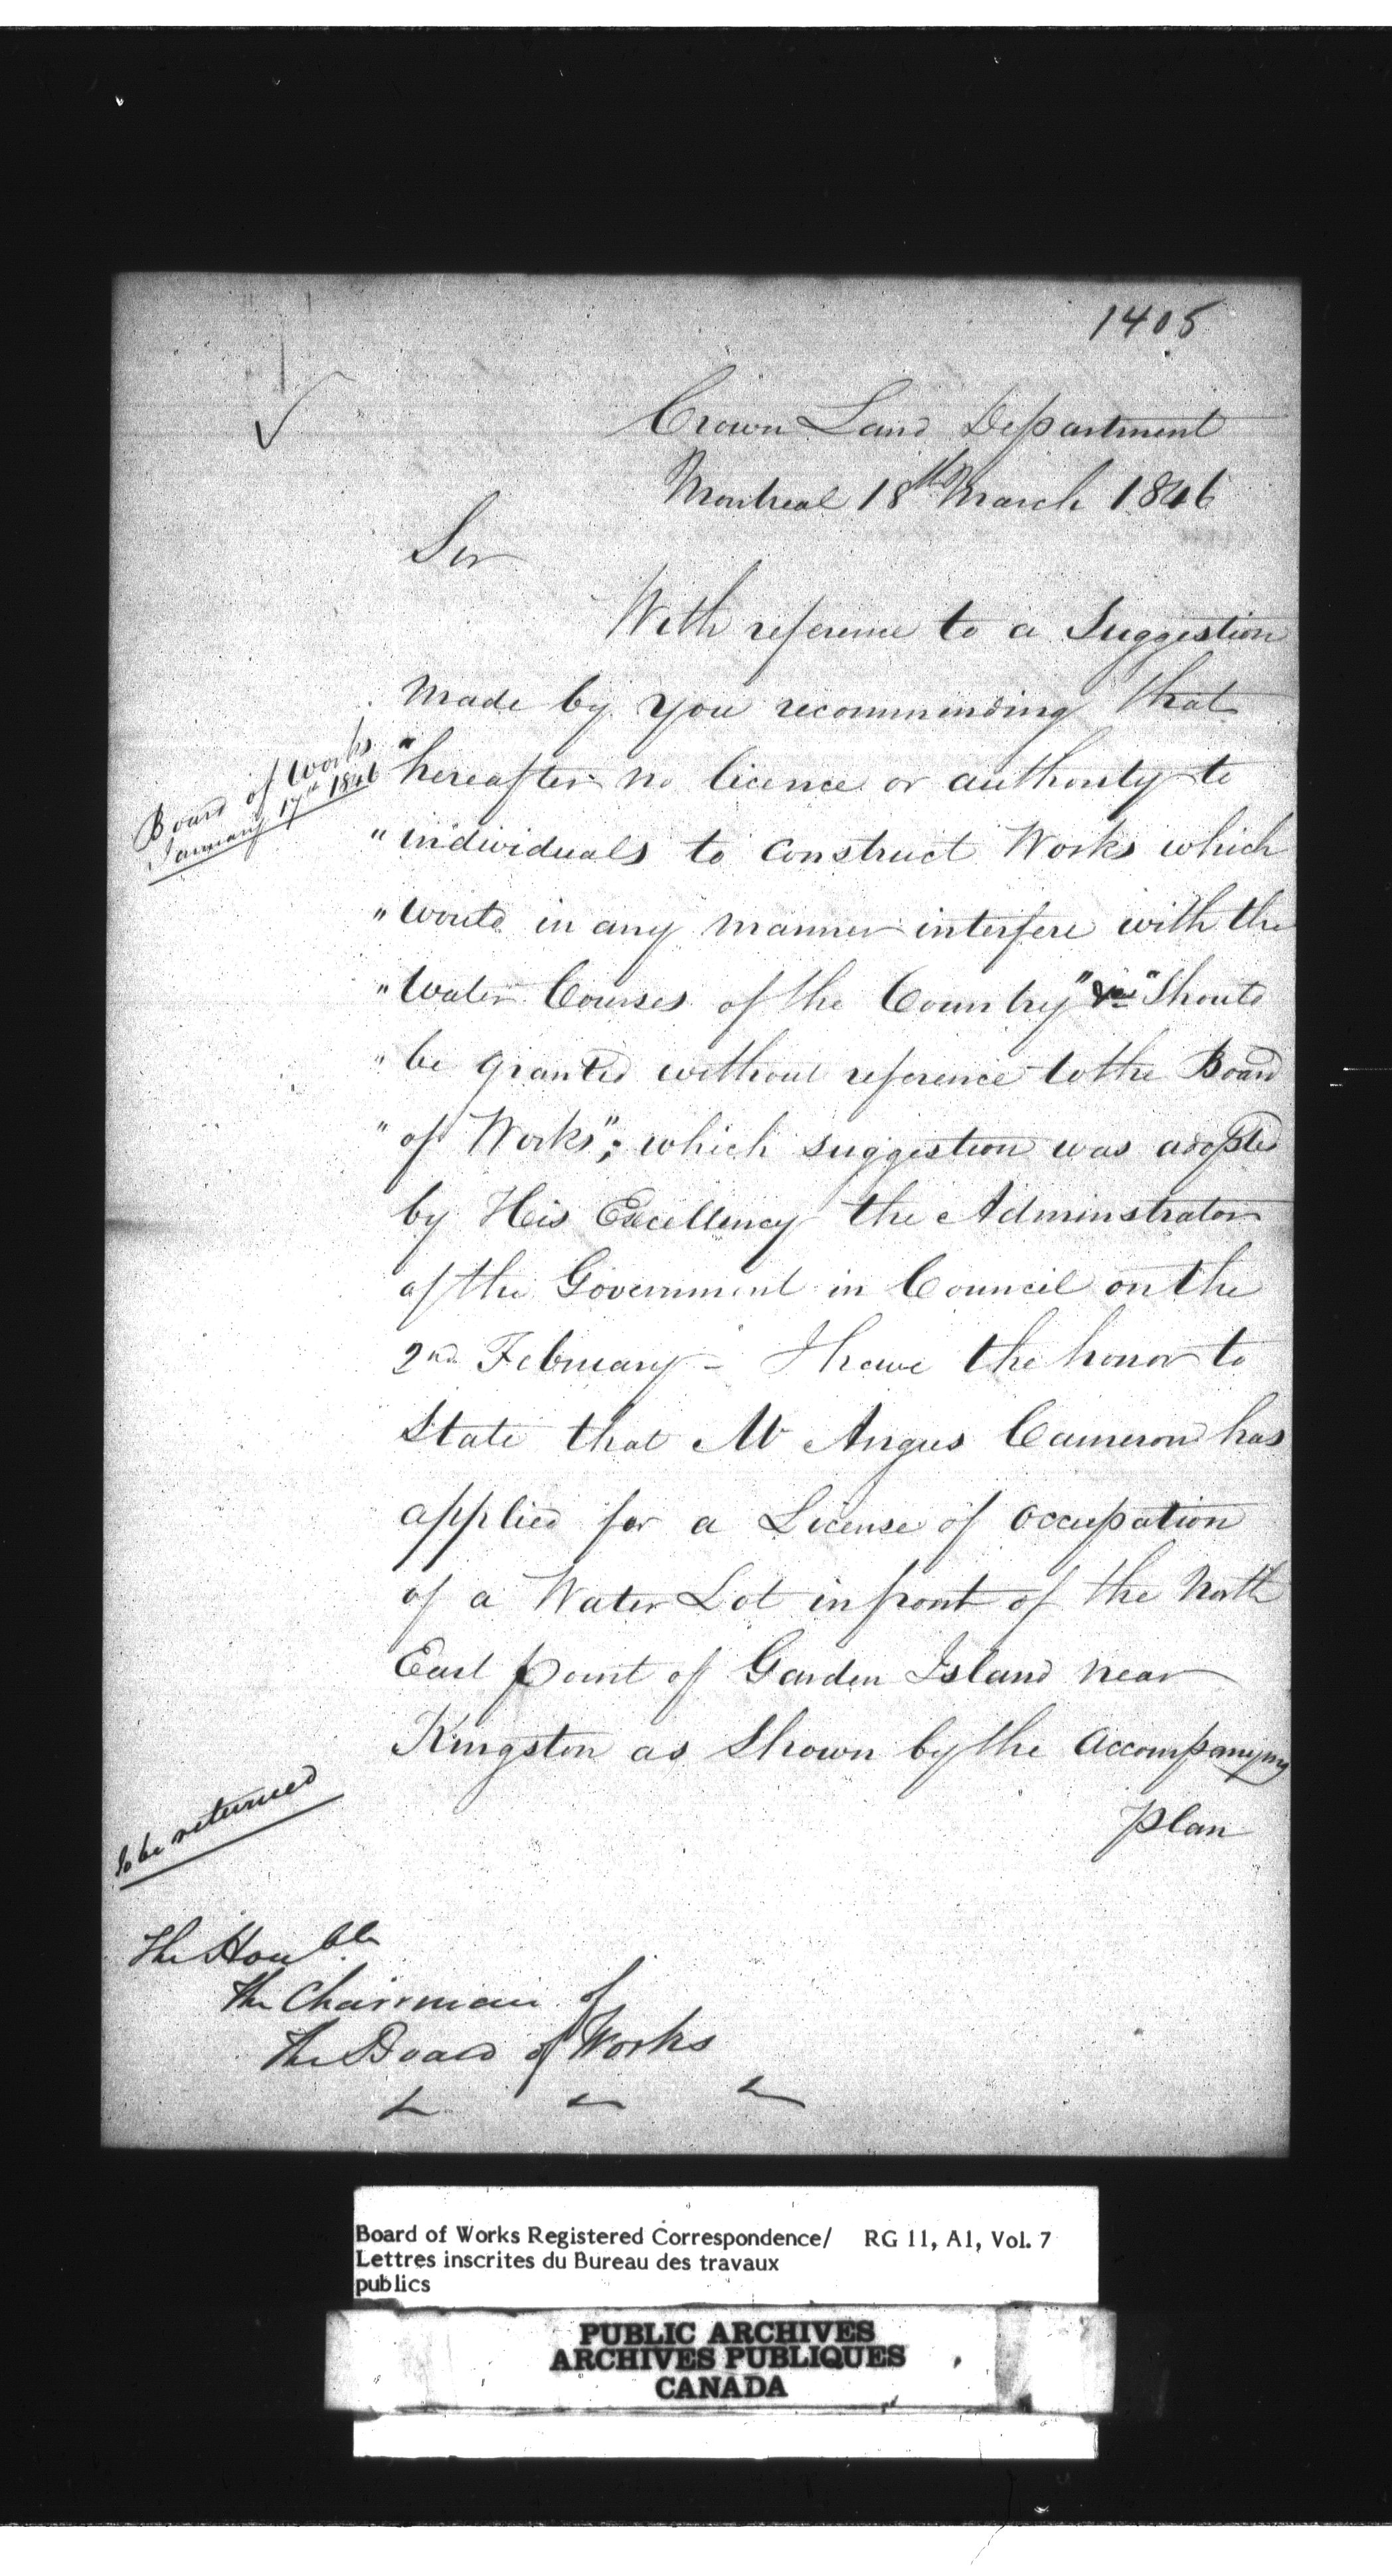 1405
Crown Land Department
Montreal 18th March 1846
Sir
With reference to a Suggestion
made by you recommending that
"hereafter no licence or authority to
"individuals to construct Works which
"would in any manner interfere with the
"Water Courses of the Country" &ca "Should
"be granted without reference to the Board
"of Works"; which suggestion was adopted
by His Excellency the Adminstrator
of the Government in Council on the
2nd February - I have the honor to
State that Mr Angus Cameron has
applied for a License of occupation
of a Water Lot in front of the North
East point of Garden Island near
Kingston as Shown by the accompanying
plan
Board of Works
January 17th 1846
to be returned
The Honble
the Chairman of
the Board of Works
Board of Works Registered Correspondence/ RG 11, A1, Vol. 7
Lettres inscrites du Bureau des travaux
publics
PUBLIC ARCHIVES
ARCHIVES PUBLIQUES
CANADA